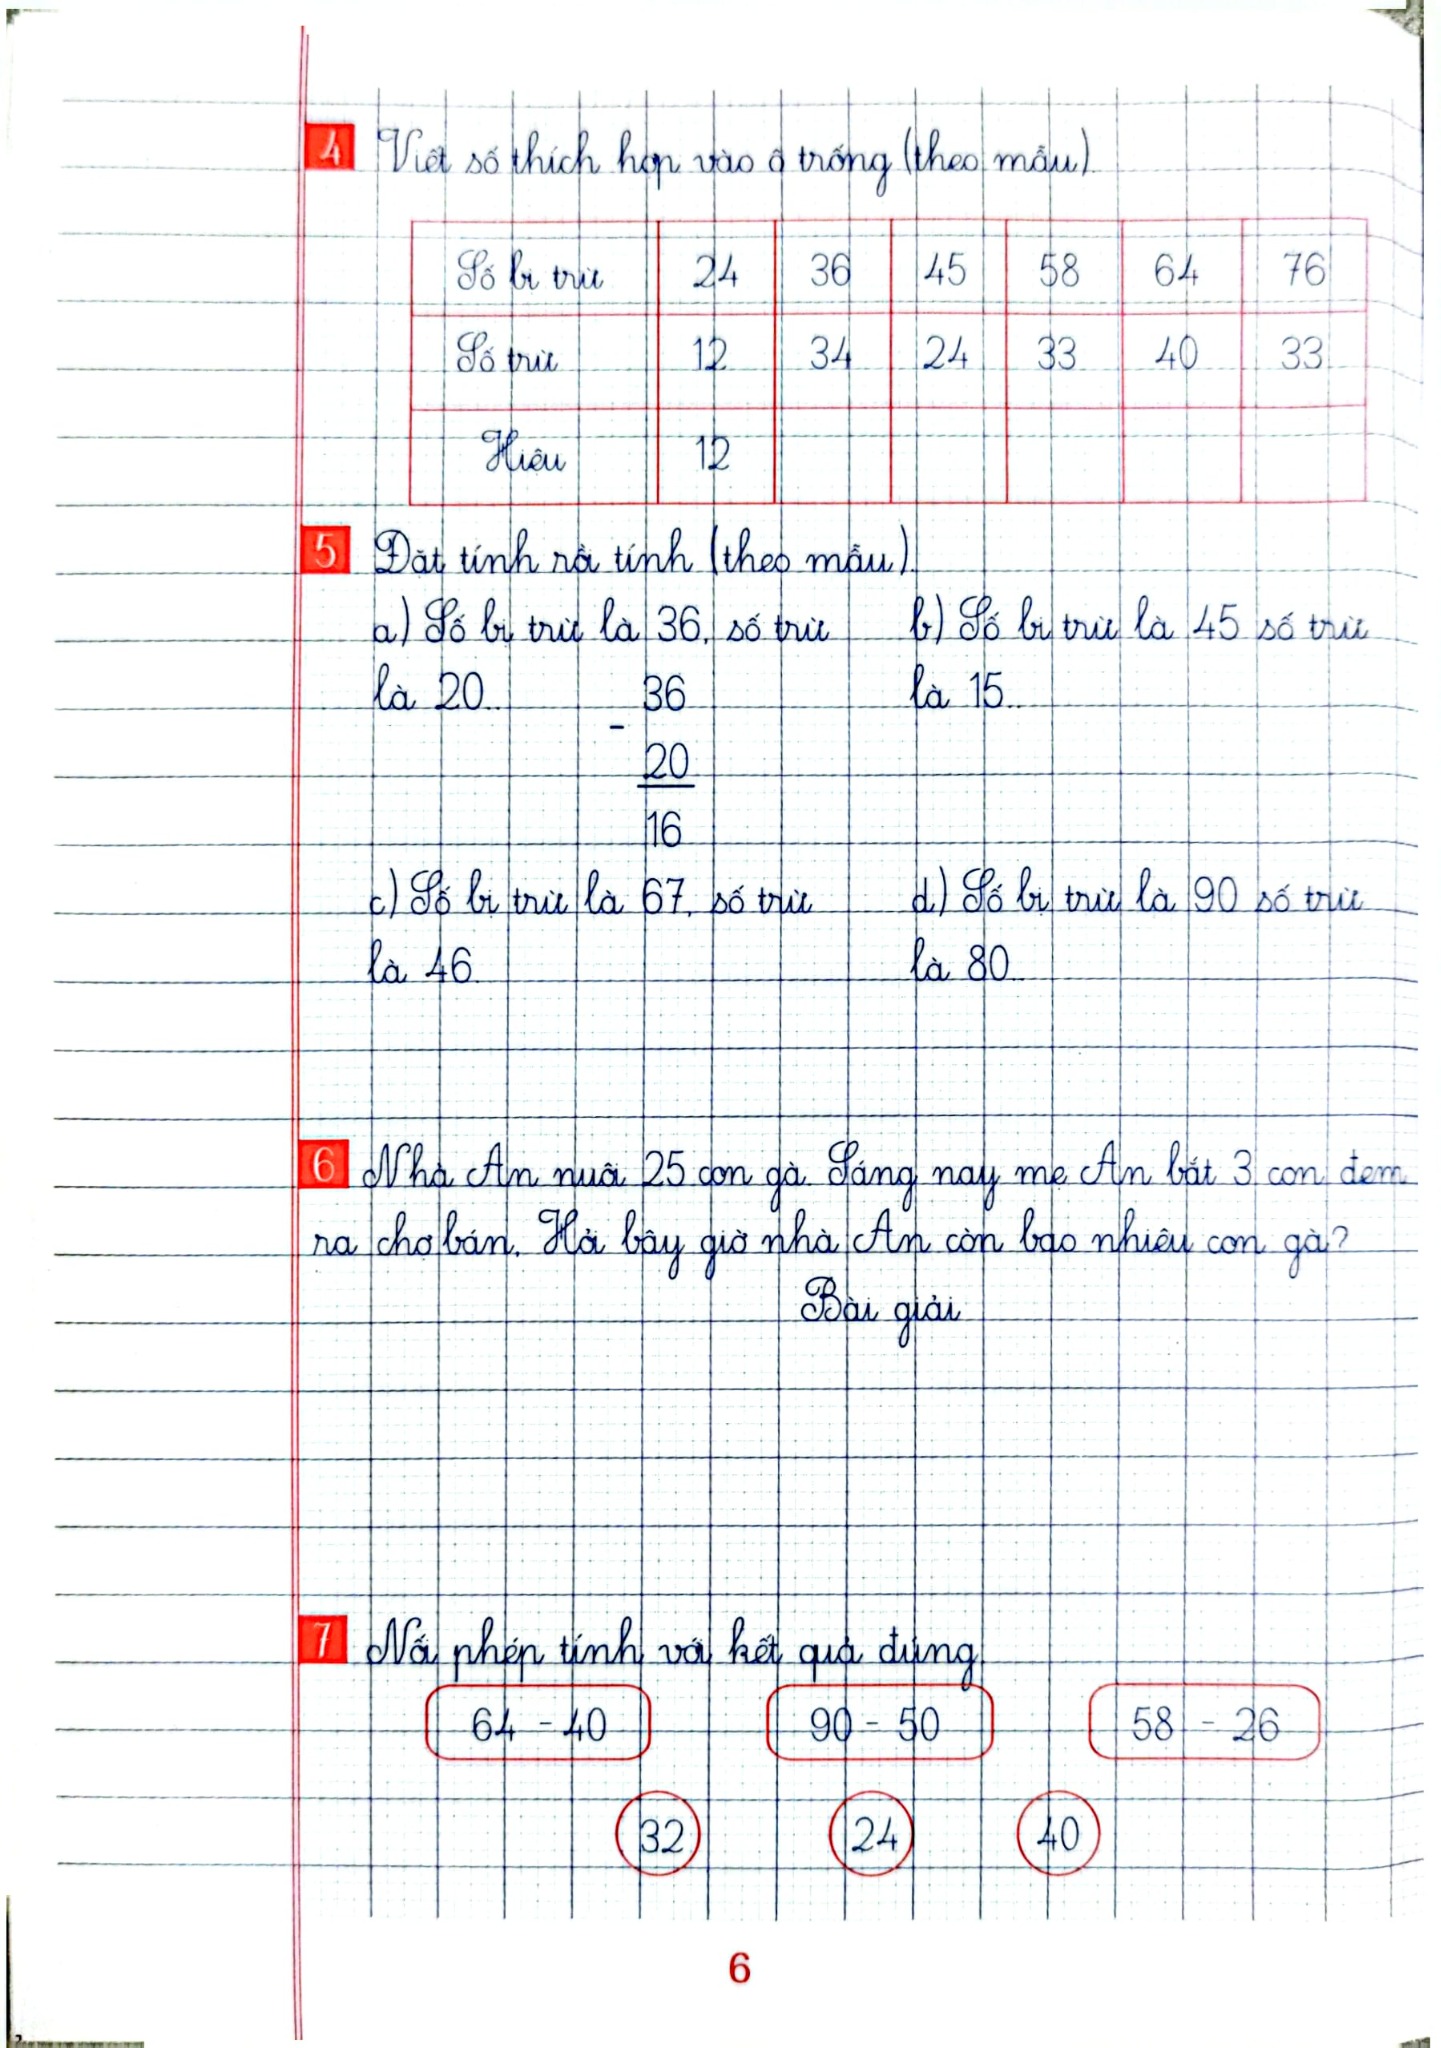 4 Viết số thích hợp vào ô trống (theo mẫu).
Số bị trừ 24 36 45 58 64 76
Số trừ 12 34 24 33 40 33
Hiệu 12
5 Đặt tính rồi tính (theo mẫu).
a) Số bị trừ là 36, số trừ là 20.
36
-
20
16
b) Số bị trừ là 45 số trừ là 15.
c) Số bị trừ là 67, số trừ là 46
d) Số bị trừ là 90 số trừ là 80
6 Nhà An nuôi 25 con gà. Sáng nay mẹ An bắt 3 con đem
ra chợ bán. Hỏi bây giờ nhà An còn bao nhiêu con gà?
Bài giải
7 Nối phép tính với kết quả đúng.
64 - 40 90 - 50 58 - 26
32 24 40
6